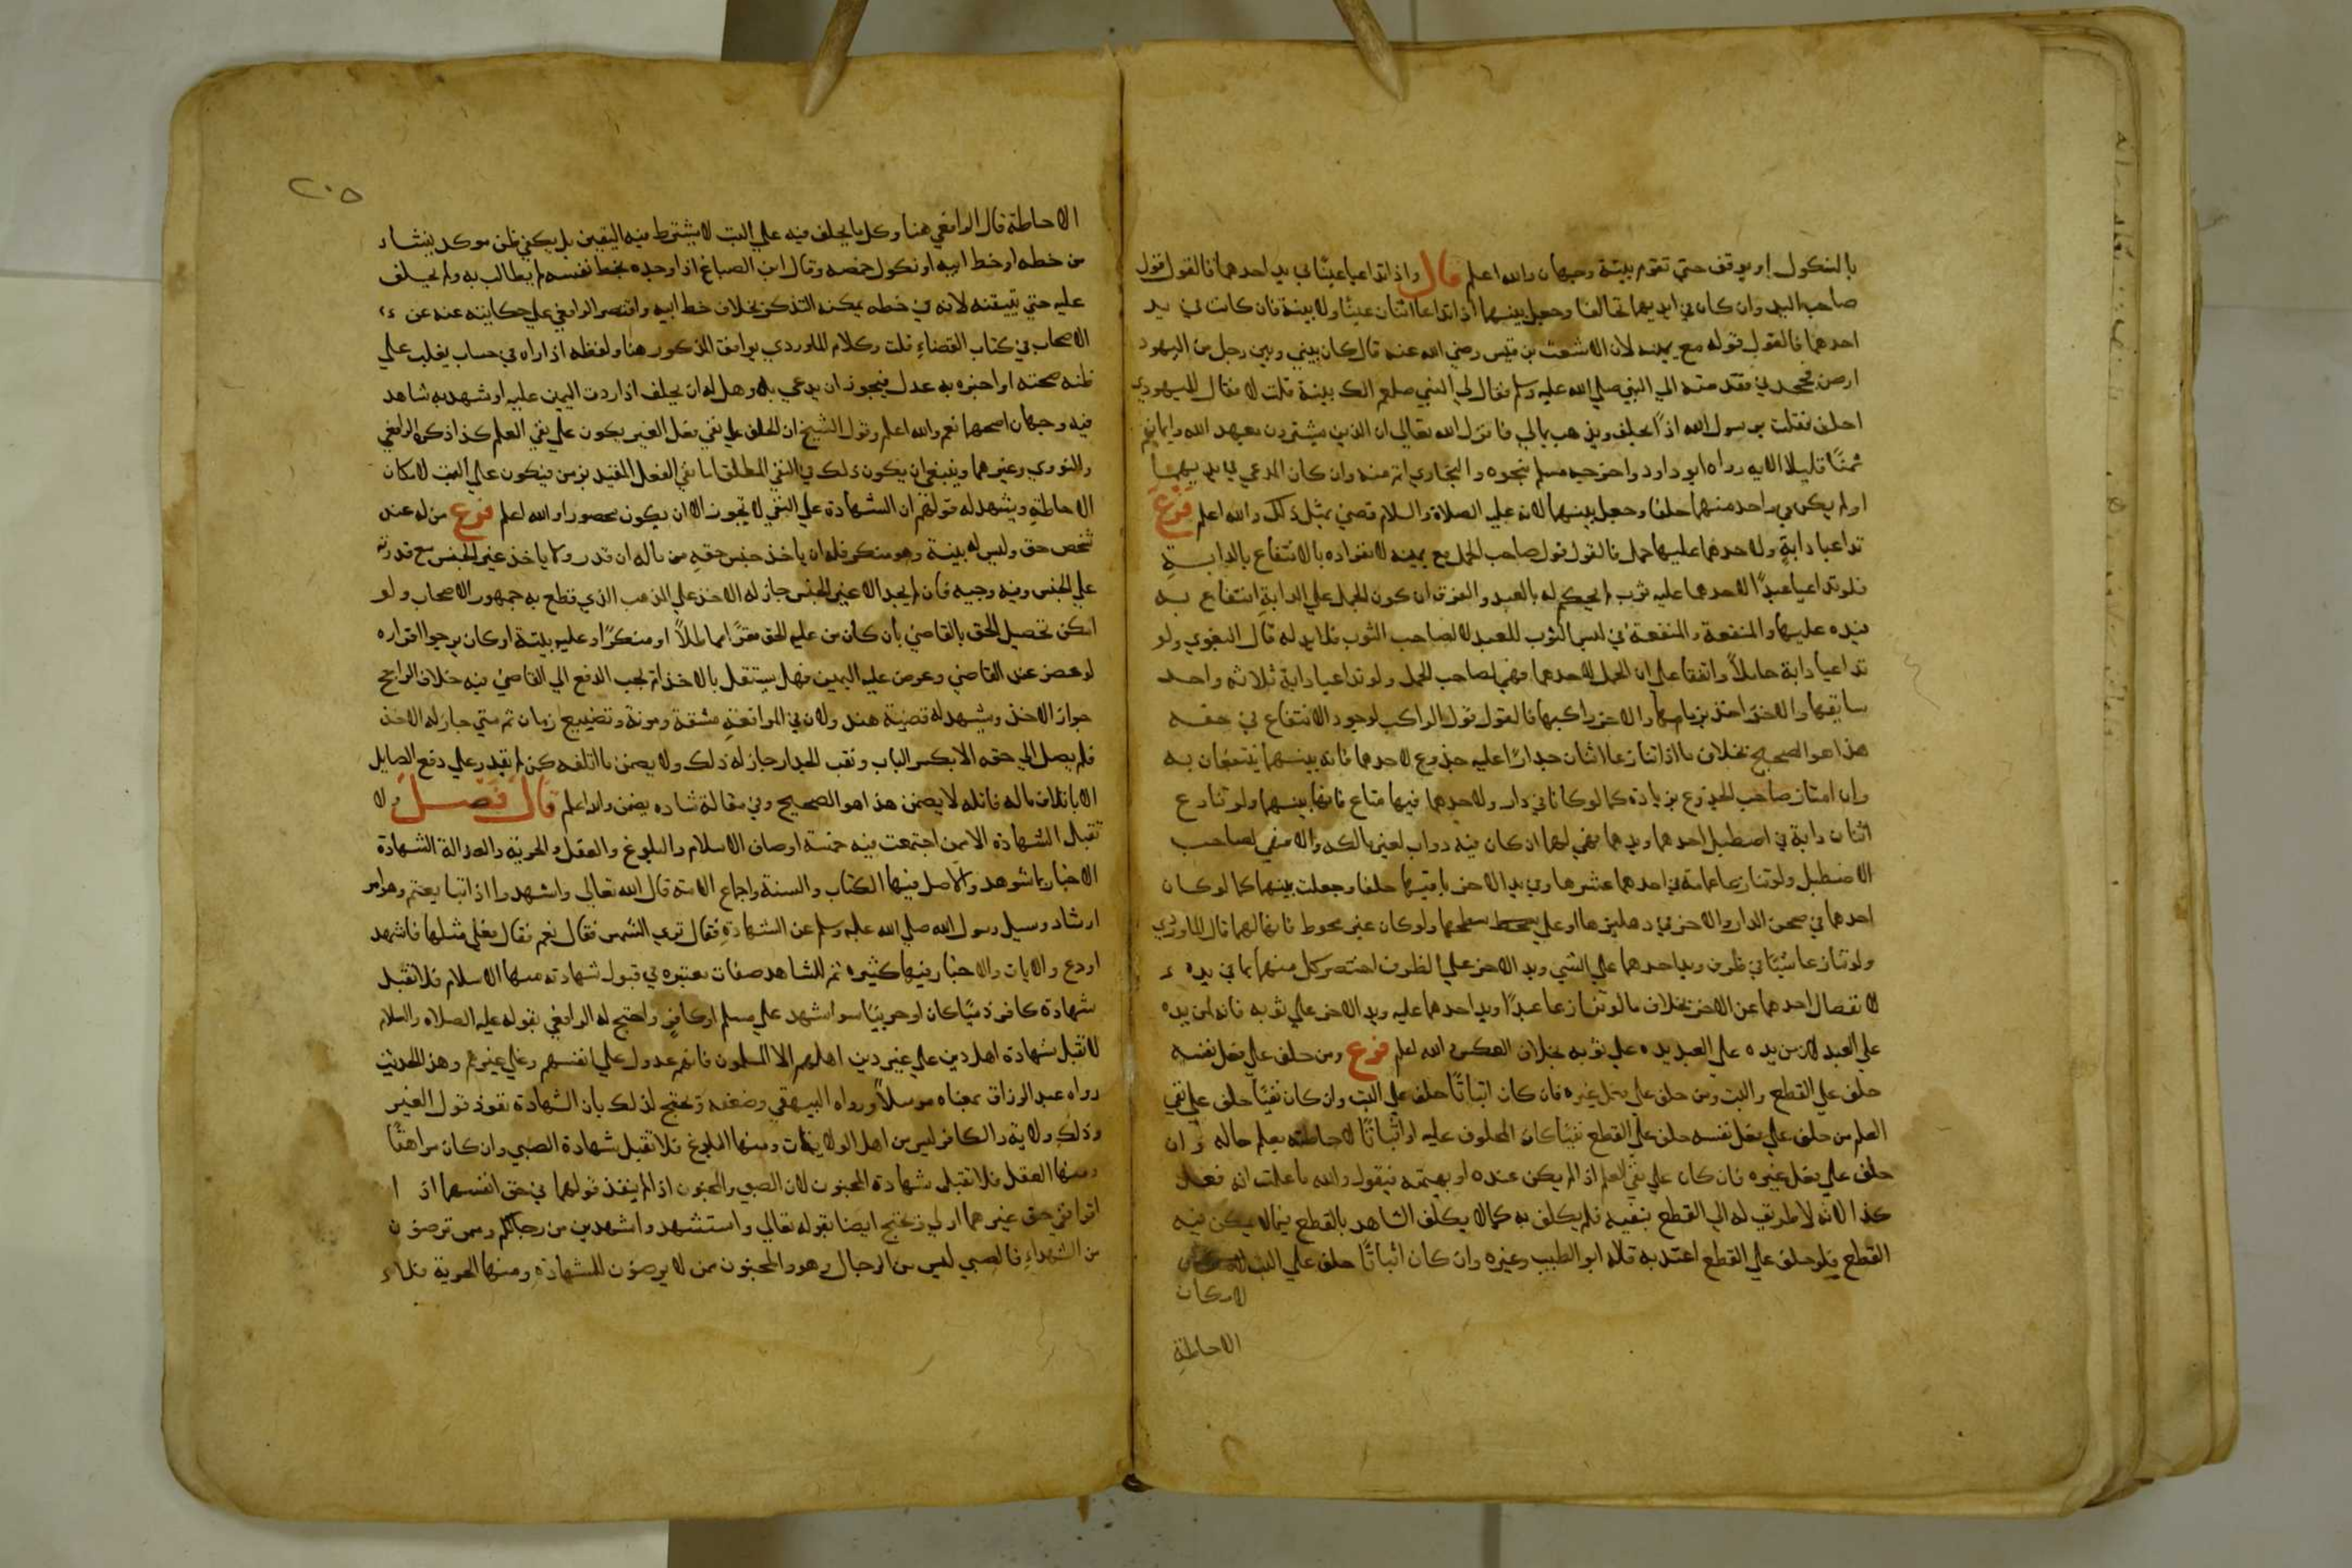 بالنكول او يوقف حتي تقوم بينة وجهان والله اعلم قال واذا تداعيا عينا في يد احدهما فالقول قول
صاحب اليد وان كان في ايديهما تحالفا وجعل بينهما اذا تداعا اثنان عينا ولا بينة فان كانت في يد
احدهما فالقول قوله مع يمينه لان الاشعث بن قيس رضي الله عنه قال كان بيني وبين رجل من اليهود
ارض فجحدني فقدمته الي النبي صلي الله عليه وسلم فقال لي النبي صلعم الك بينة قلت لا فقال لليهودي
احلف فقلت يرسول الله اذًا يحلف ويذهب بمالي فانزل الله تعالي ان الذين يشترون بعهد الله وايمانهم
ثمنًا قليلا الايه رواه ابو داود واخرجه مسلم بنحوه والبخاري اتم منه وان كان المدعي في يديهما
اولم يكن في واحد منهما حلفا وجعل بينهما لانه عليه الصلاة والسلام قضي بمثل ذلك والله اعلم فرع
تداعيا دابةٍ ولاحدهما عليها حمل فالقول قول صاحب الحمل مع يمينه لانفراده بالانتفاع بالدابةِ
فلو تداعيا عبدًا لاحدهما عليه ثوب لم يحكم له بالعبد والفرق ان كون الحمل علي الدابةِ انتفاع به
فيده عليها والمنفعة والمنفعة في لبس الثوب للعبد لا لصاحب الثوب فلا يد له قال البغوي ولو
تداعيا دابة حاملاً واتفقا علي ان الحمل لاحدهما فهي لصاحب الحمل ولو تداعيا دابة ثلاثه واحد
سايقها والاخر اخذ بزمامها والاخر راكبها فالقول قول الراكب لوجود الانتفاع في حقه
هذا هو الصحيح بخلاف ما اذا تنازعا اثنان جدارًا عليه جذوع لاحدهما فانه بينهما ينتفعان به
وان امتاز صاحب الجذوع بزيادة كما لو كانا في دار ولاحدهما فيها متاع فانها بينهما ولو تنازع
اثنان دابة في اصطبل احدهما ويدهما فهي لهما ان كان فيه دواب لغير مالكه والا فهي لصاحب
الاصطبل ولو تنازعا عمامة في يد احدهما عشرها وفي يد الاخر باقيها حلفا وجعلت بينهما كما لو كان
احدهما في صحن الدار والاخر في دهليزها او علي سطحها ولو كان غير محوط فانها لهما قال الماوردي
ولو تنازعا شيًا في ظرف ويد احدهما علي الشي ويد الاخر علي الظرف اختص كل منهما بما في يده
لانفصال احدهما عن الاخر بخلاف ما لو تنازعا عبدًا ويد احدهما عليه ويد الاخر علي ثوبه فانه لمن يده
علي العبد لان من يده علي العبد يده علي ثوبه بخلاف العكس الله اعلم فرع ومن حلف علي فعل نفسه
حلف علي القطع والبت ومن حلف علي فعل غيره فان كان اثباتًا حلف علي البت وان كان نفيًا حلف علي نفي
العلم من حلف علي فعل نفسه حلف علي القطع نفيًا كان المحلوف عليه او اثباتًا لاحاطته بعلم حاله وان
حلف علي فعل غيره فان كان علي نفي العلم اذا لم يكن عنده او بهيمته فيقول والله ما علمت انه فعل
كذا لانه لا طريق له الي القطع بنفيه فلم يكلف به كما لا يكلف الشاهد بالقطع فيما لا يمكن فيه
القطع فلو حلف علي القطع اعتد به قاله ابو الطيب وغيره وان كان اثباتًا حلف علي البت
لامكان
الاحاطةِ
٢٠٥
الاحاطة قال الرافعي هنا وكل ما يحلف فيه علي البت لا يشترط فيه اليقين بل يكفي ظن موكد ينشاء
من خطه او خط ابيه او نكول خصمه وقال ابن الصباغ اذا وجده بخط نفسه لم يطالب به ولم يحلف
عليه حتي يتيقنه لانه في خطه يمكنه التذكر بخلاف خط ابيه واقتصر الرافعي علي حكايته عنه عن
الاصحاب في كتاب القضاءِ قلت وكلام الماوردي يوافق المذكور هنا ولفظه اذا راه في حساب يغلب علي
ظنه صحته او اخبره به عدل فيجوز ان يدعي به وهل له ان يحلف اذا ردت اليمين عليه او شهد به شاهد
فيه وجهان اصحهما نعم والله اعلم وقول الشيخ ان الحلف علي نفي فعل الغير يكون علي نفي العلم كذا ذكره الرافعي
والنووي وغيرهما وينبغي ان يكون ذلك في النفي المطلق اما نفي الفعل المقيد بزمن فيكون علي البت لامكان
الاحاطةِ ويشهد له قولهم ان الشهادة علي النفي لا تجوز الا ان يكون محصورا والله اعلم فرع من له عند
شخص حق وليس له بينة وهو منكر فله ان ياخذ جنس حقهِ من ماله ان قدر ولا ياخذ غير الجنس مع قدرته
علي الجنس وفيه وجيه فان لم يجد الا غير الجنس جاز له الاخذ علي المذهب الذي قطع به جمهور الاصحاب ولو
امكن تحصيل الحق بالقاضي بأن كان من عليه الحق مقرًا مماطلاً او منكرًا وعليه بينة او كان يرجوا اقراره
لو حضر عند القاضي وعرض عليه اليمين فهل يستقل بالاخذ ام يجب الدفع الي القاضي فيه خلاف الراجح
جواز الاخذ ويشهد له قضية هند ولان في المرافعةِ مشقة ومونة وتضييع زمان ثم متي جاز له الاخذ
فلم يصل الي حقه الا بكسر الباب ونقب الجدار جاز له ذلك ولا يضمن ما اتلفه كمن لم يقدر علي دفع الصايل
الا باتلاف ماله فاتلفه لا يضمن هذا هو الصحيح وفي مقالة شاذه يضمن والله اعلم قال فصل ولا
تقبل الشهادة الا ممن اجتمعت فيه خمسة اوصاف الاسلام والبلوغ والعقل والحرية والعدالة الشهادة
الاخبار بما شوهد والاصل فيها الكتاب والسنة واجماع الامة قال الله تعالي واشهدوا اذا تبايعتم وهو امر
ارشاد وسيل رسول الله صلي الله عليه وسلم عن الشهادةِ فقال تري الشمس فقال نعم فقال فعلي مثلها فاشهد
اودع والايات والاخبار فيها كثيره ثم للشاهد صفات معتبره في قبول شهادته منها الاسلام فلا تقبل
شهادة كافر ذميًا كان او حربيًا سوا شهد علي مسلم او كافرٍ واحتج له الرافعي بقوله عليه الصلاه والسلام
لا تقبل شهادة اهل دين علي غير دين اهلهم الا المسلمون فانهم عدول علي انفسهم وعلي غيرهم وهذا الحديث
رواه عبد الرزاق بمعناه مرسلاً ورواه البيهقي وضعفه ويحتج لذلك بان الشهادة نفوذ قول الغير
وذلك ولاية والكافر ليس من اهل الولايات ومنها البلوغ فلا تقبل شهادة الصبي وان كان مراهقًا
ومنها العقل فلا تقبل شهادة المجنون لان الصبي والمجنون اذا لم ينفذ قولهما في حق انفسهما اذا ا
اقرا ففي حق غيرهما اولي ويحتج ايضا بقوله تعالي واستشهدوا شهيدين من رجالكم وممن ترضون
من الشهداءِ فالصبي ليس من الرجال وهو والمجنون ممن لا يرضون للشهادةِ ومنها الحرية فلا